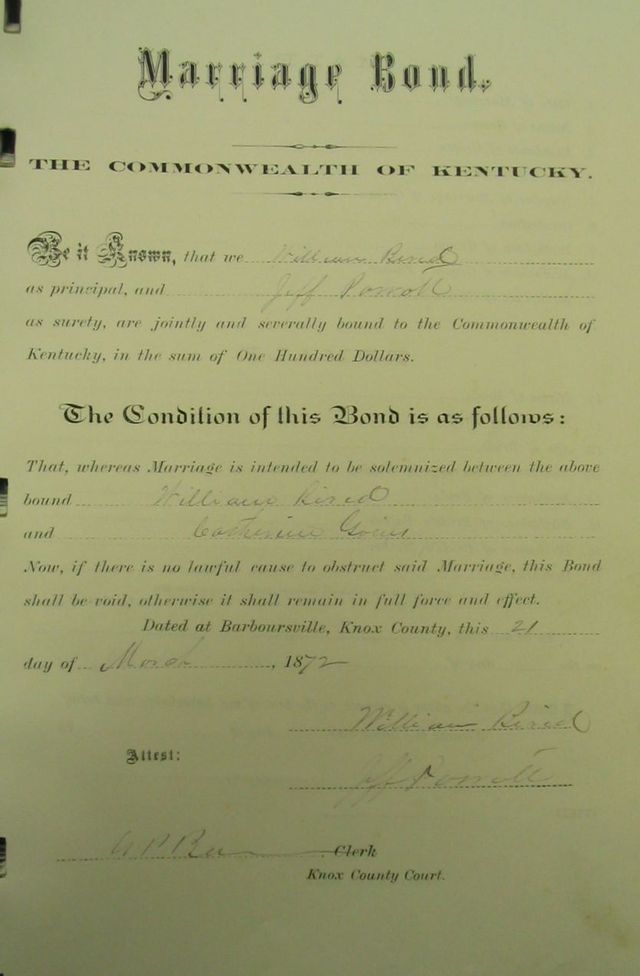 Marriage Bond.
THE COMMONWEALTH OF KENTUCKY.
Be it Known, that we William
as principal, and Jeff
as surety, are jointly and severally bound to the Commonwealth of
Kentucky, in the sum of One Hundred Dollars.
The Condition of this Bond is as follows:
That, whereas Marriage is intended to be solemnized between the above
bound William
and Catherine
Now, if there is no lawful cause to obstruct said Marriage, this Bond
shall be void, otherwise it shall remain in full force and effect.
Dated at Barboursville, Knox County, this 21
day of March, 1872
William
Attest:
Jeff
Clerk
Knox County Court.